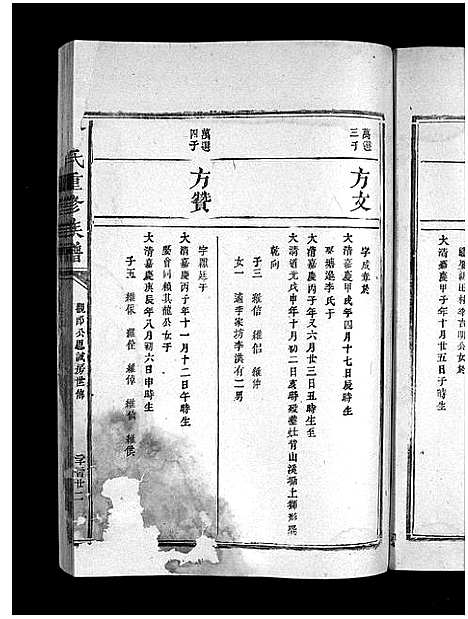 萬選三子
方文
字成春於
大清嘉慶甲戌年四月十七日辰時生
娶塘邊李氏于
大清嘉慶丙子年又六月廿三日丑時生至
大清道光戊申年十月初二日亥時歿葬社背山溪塘上獅形巽
乾向
子三 維信 維 維仲
女一 適李家坊李洪有二男
萬選四子
方贊
字 廷于
大清嘉慶丙子年十一月十二日午時生
娶曾同賴其龍公女于
大清嘉慶庚辰年八月初六日申時生
子五 維保 維 維倬 維佰 維侯
氏重修族譜
觀郎公愿誠房世傳
大清嘉慶甲子年十月廿五日子時生